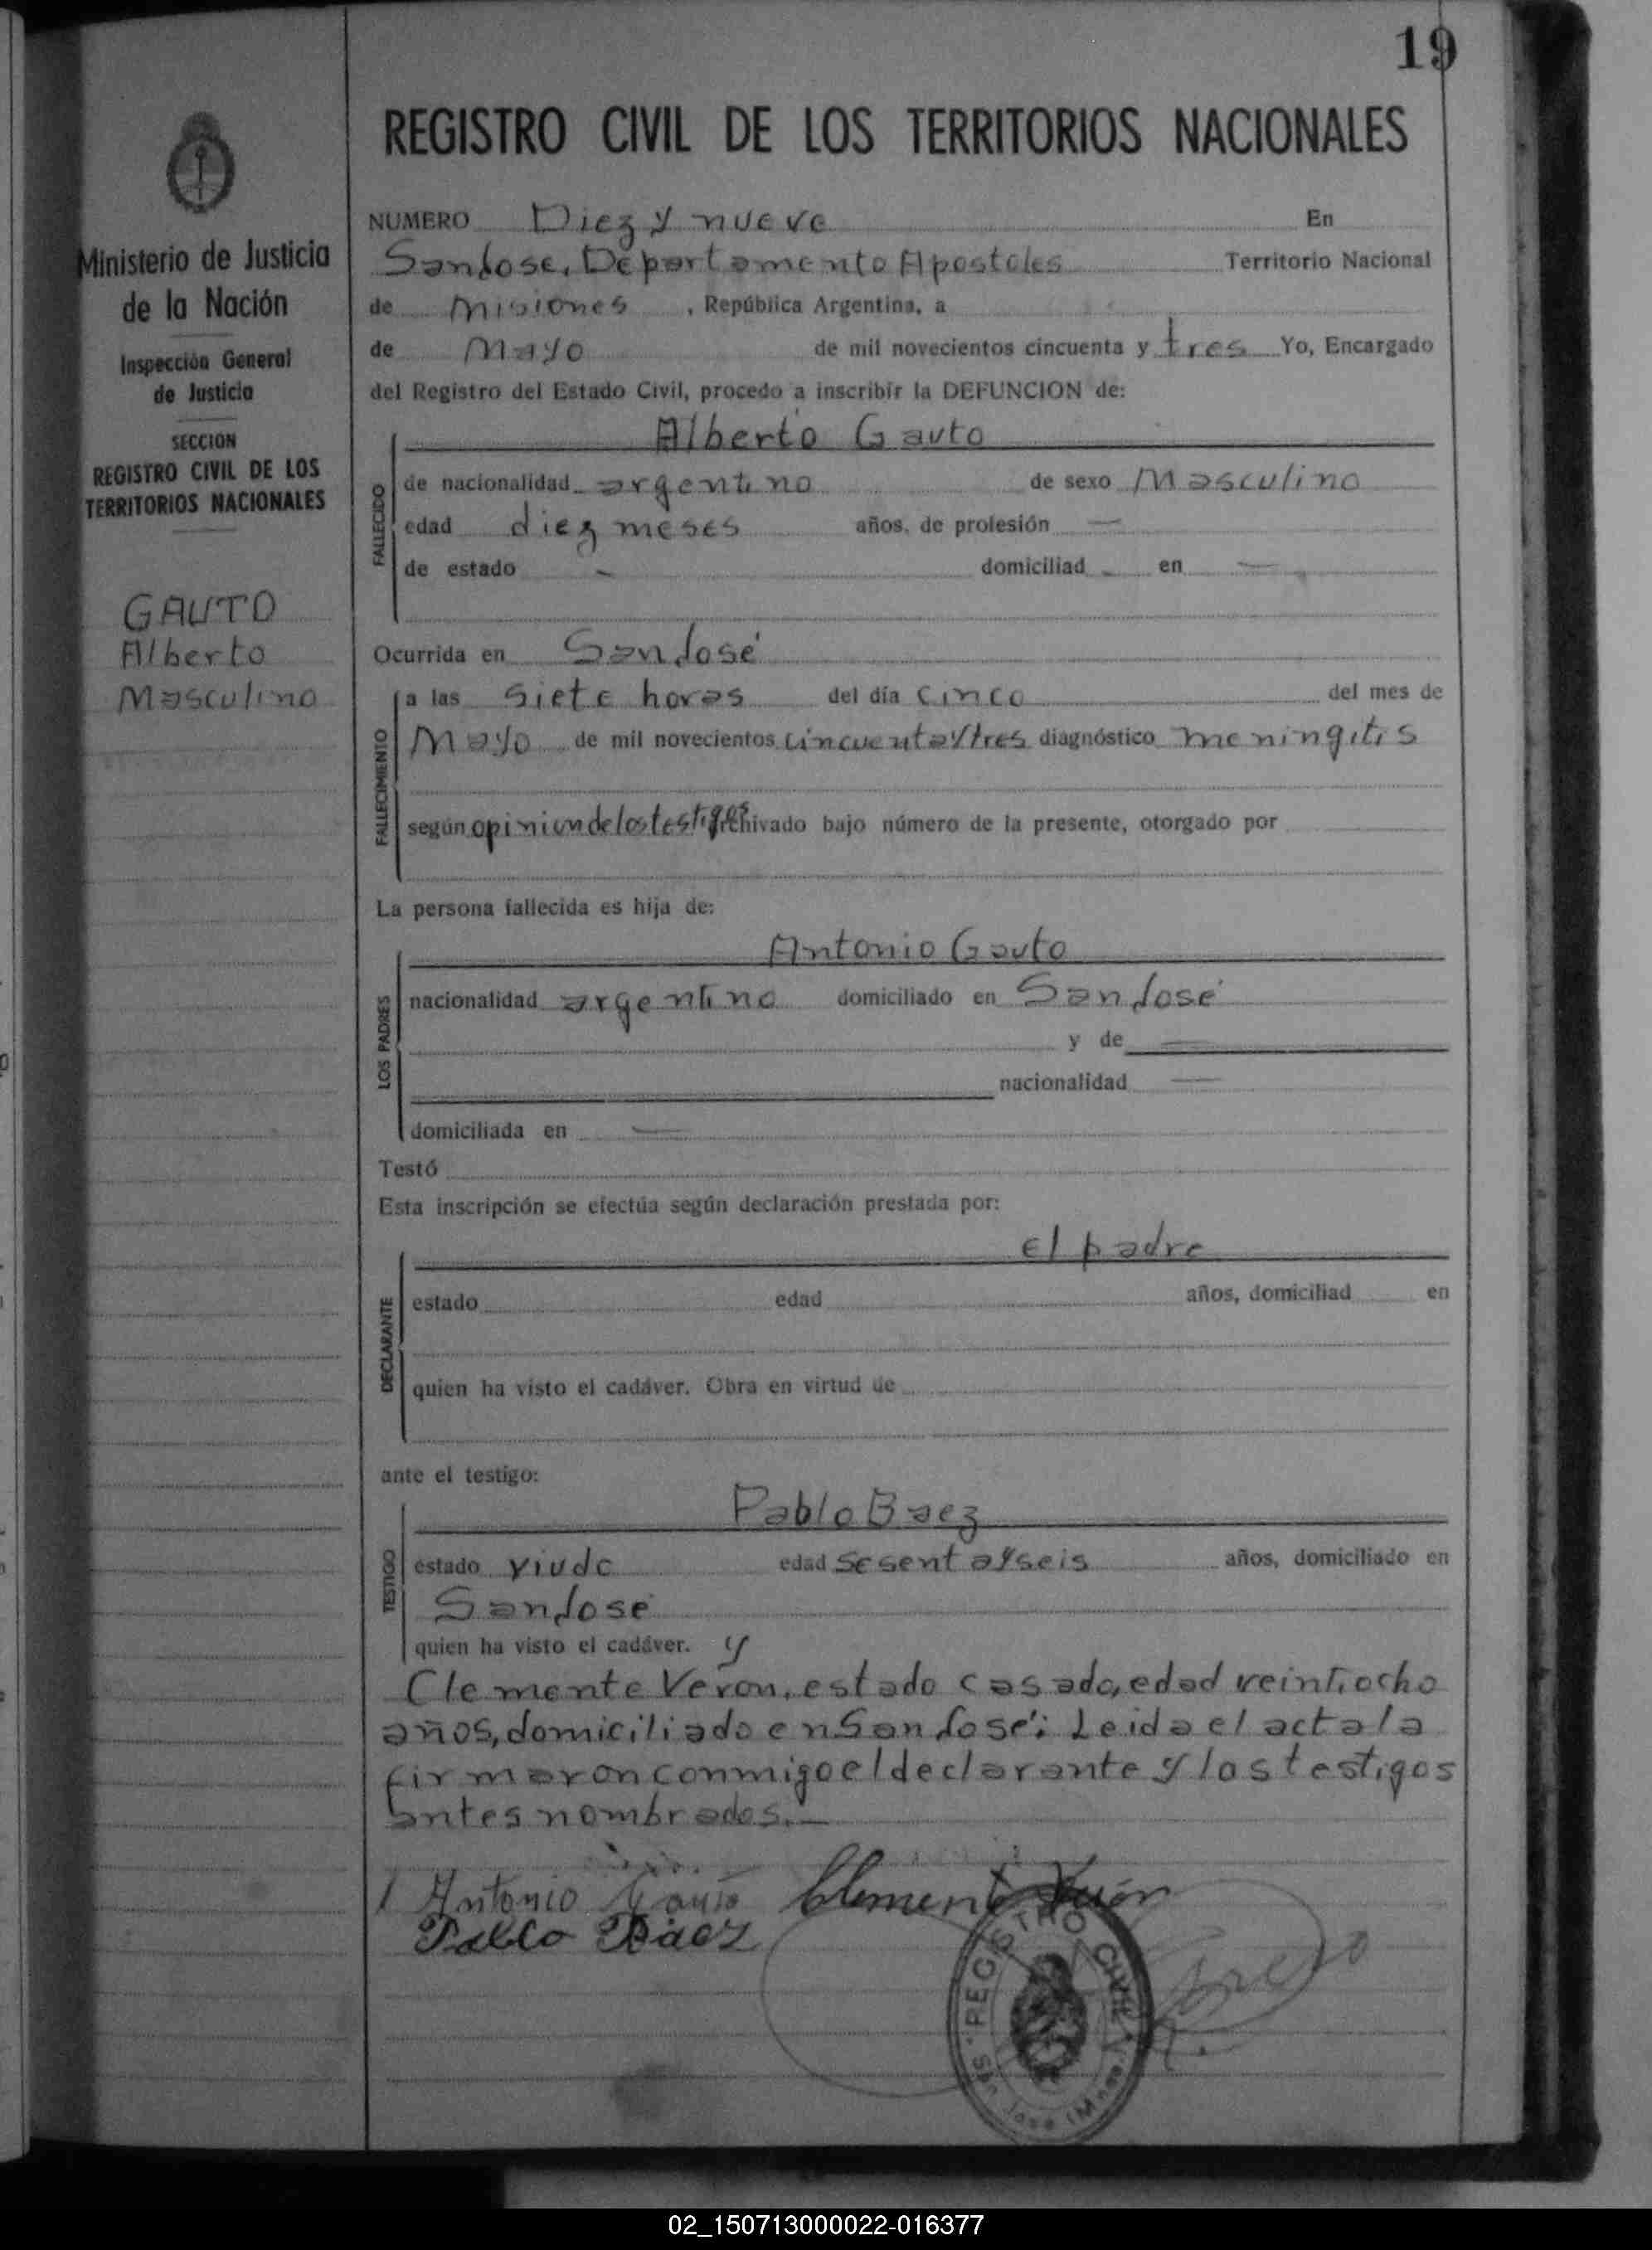 19
REGISTRO CIVIL DE LOS TERRITORIOS NACIONALES
Ministerio de Justicia
de la Nación
Inspección General
de Justicia
SECCION
REGISTRO CIVIL DE LOS
TERRITORIOS NACIONALES
GAUTO
Alberto
Masculino
NUMERO Diez y nueve En
San Jose, Departamento Apostoles Territorio Nacional
de Misiones, República Argentina, a
de Mayo de mil novecientos cincuenta y tres Yo, Encargado
del Registro del Estado Civil, procedo a inscribir la DEFUNCION de:
Alberto Gauto
FALLECIDO
de nacionalidad argentino de sexo Masculino
edad diez meses años, de profesión —
de estado - domiciliad - en —
Ocurrida en San José
FALLECIMIENTO
a las siete horas del día cinco del mes de
Mayo de mil novecientos cincuenta y tres diagnóstico meningitis
según opinion de los testigos archivado bajo número de la presente, otorgado por
La persona fallecida es hija de:
Antonio Gauto
LOS PADRES
nacionalidad argentino domiciliado en San José
y de —
nacionalidad —
domiciliada en —
Testó
Esta inscripción se efectúa según declaración prestada por:
el padre
DECLARANTE
estado edad años, domiciliad en
quien ha visto el cadáver. Obra en virtud de
ante el testigo:
Pablo Baez
TESTIGO
estado viudo edad sesenta y seis años, domiciliado en
San José
quien ha visto el cadáver. y
Clemente Veron, estado casado, edad veintiocho
años, domiciliado en San José: Leida el acta la
firmaron conmigo el declarante y los testigos
antes nombrados.—
Antonio Gauto Clemente Verón
Pablo Báez
REGISTRO CIVIL
San Jose (Mnes.)
02_150713000022-016377